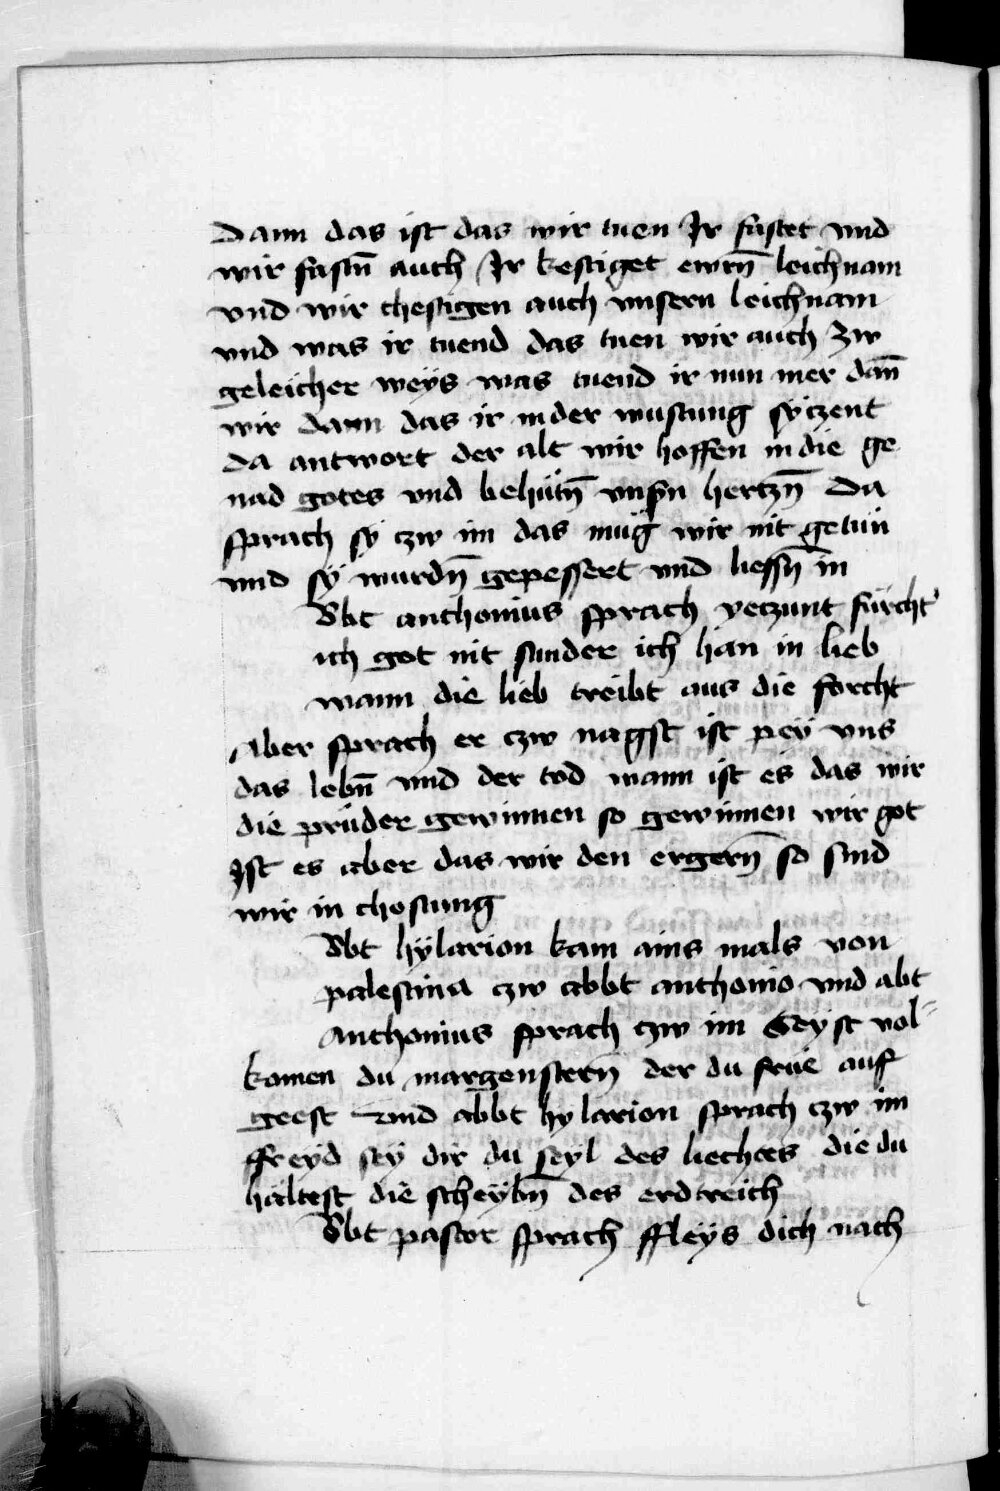 Dann das ist das wir tuen Ir fastet vnd
wir fastn̄ auch Ir kestiget ewrn̄ leichnam
vnd wir chestigen auch vnsern leichnam
vnd was ir tuend das tuen wir auch zw
geleicher weÿs was tuend ir nun mer dan̄
wir dann das ir in der wustung sÿczent
Da antwort der alt wir hoffen in die ge
nad gotes vnd behütn̄ vnsn̄ hertzn̄ Da
sprach sÿ czw im das müg wir nit getün
vnd sÿ wurdn̄ gepessert vnd liessn̄ in
Abt anthonius sprach yetzunt fürcht
ich got nit sunder ich han in lieb
wann die lieb treibt aus die forcht
Aber sprach er czw nagst ist peÿ vns
das lebn̄ vnd der tod wann ist es das wir
die prüder gewinnen so gewinnen wir got
Ist es aber das wir den ergern̄ so sind
wir in chostung
Abt hÿlarion kam ains mals von
palestina czw abbt anthonio vnd abt
Anthonius sprach czw im Seyst vol-
komen du margenstern̄ der du frue auf
geest vnd abbt hylarion sprach czw im
ffreyd seÿ dir du seyl des liechtes die du
haltest die scheÿbn̄ des erdtreich
Abt pastor sprach ffleÿs dich nach